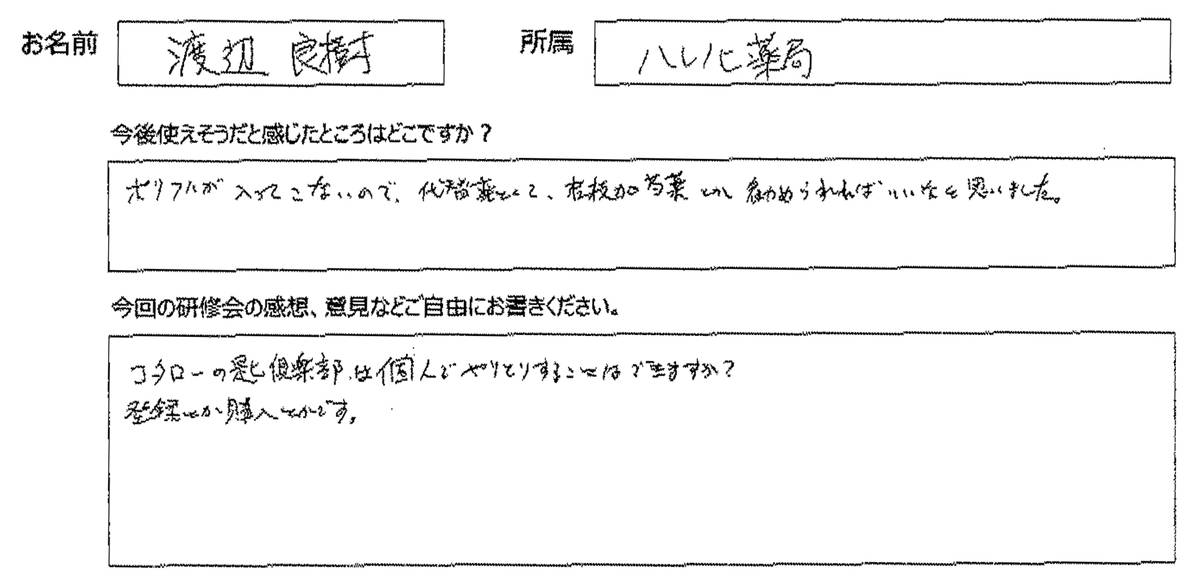 お名前 渡辺 良樹 所属 ハレノヒ薬局
今後使えそうだと感じたところはどこですか？
ポリフルが入ってこないので、代替薬として、桂枝加芍薬とか勧められればいいなと思いました。
今回の研修会の感想、意見などご自由にお書きください。
コタローの匙倶楽部は個人でやりとりすることはできますか？
登録とか購入とかです。